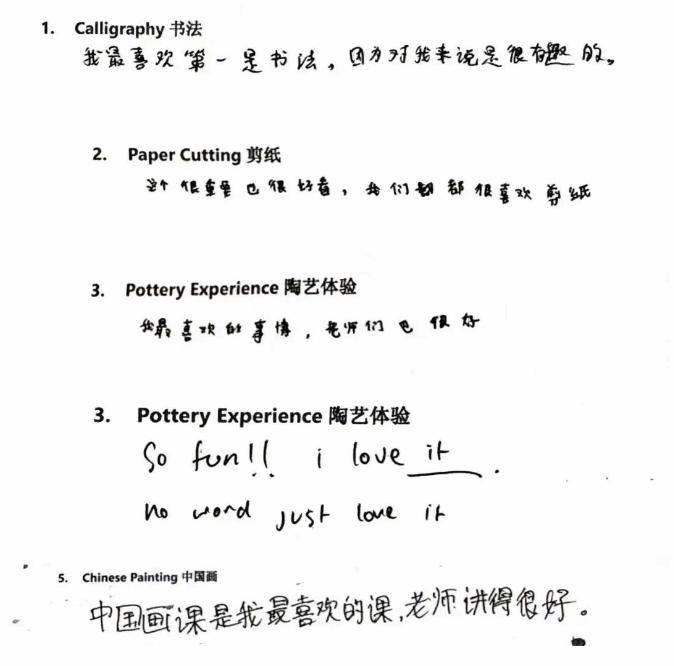 1. Calligraphy 书法
我最喜欢第一是书法，因为对我来说是很有趣的。
2. Paper Cutting 剪纸
这个很重要也很好看，我们都很喜欢剪纸
3. Pottery Experience 陶艺体验
我最喜欢的事情，老师们也很好
3. Pottery Experience 陶艺体验
So fun!! i love it.
no word just love it
5. Chinese Painting 中国画
中国画课是我最喜欢的课,老师讲得很好。